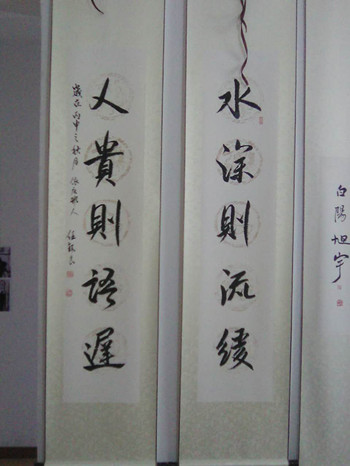 白陽
水深則流緩
人貴則語遲
歲在丙申之秋月